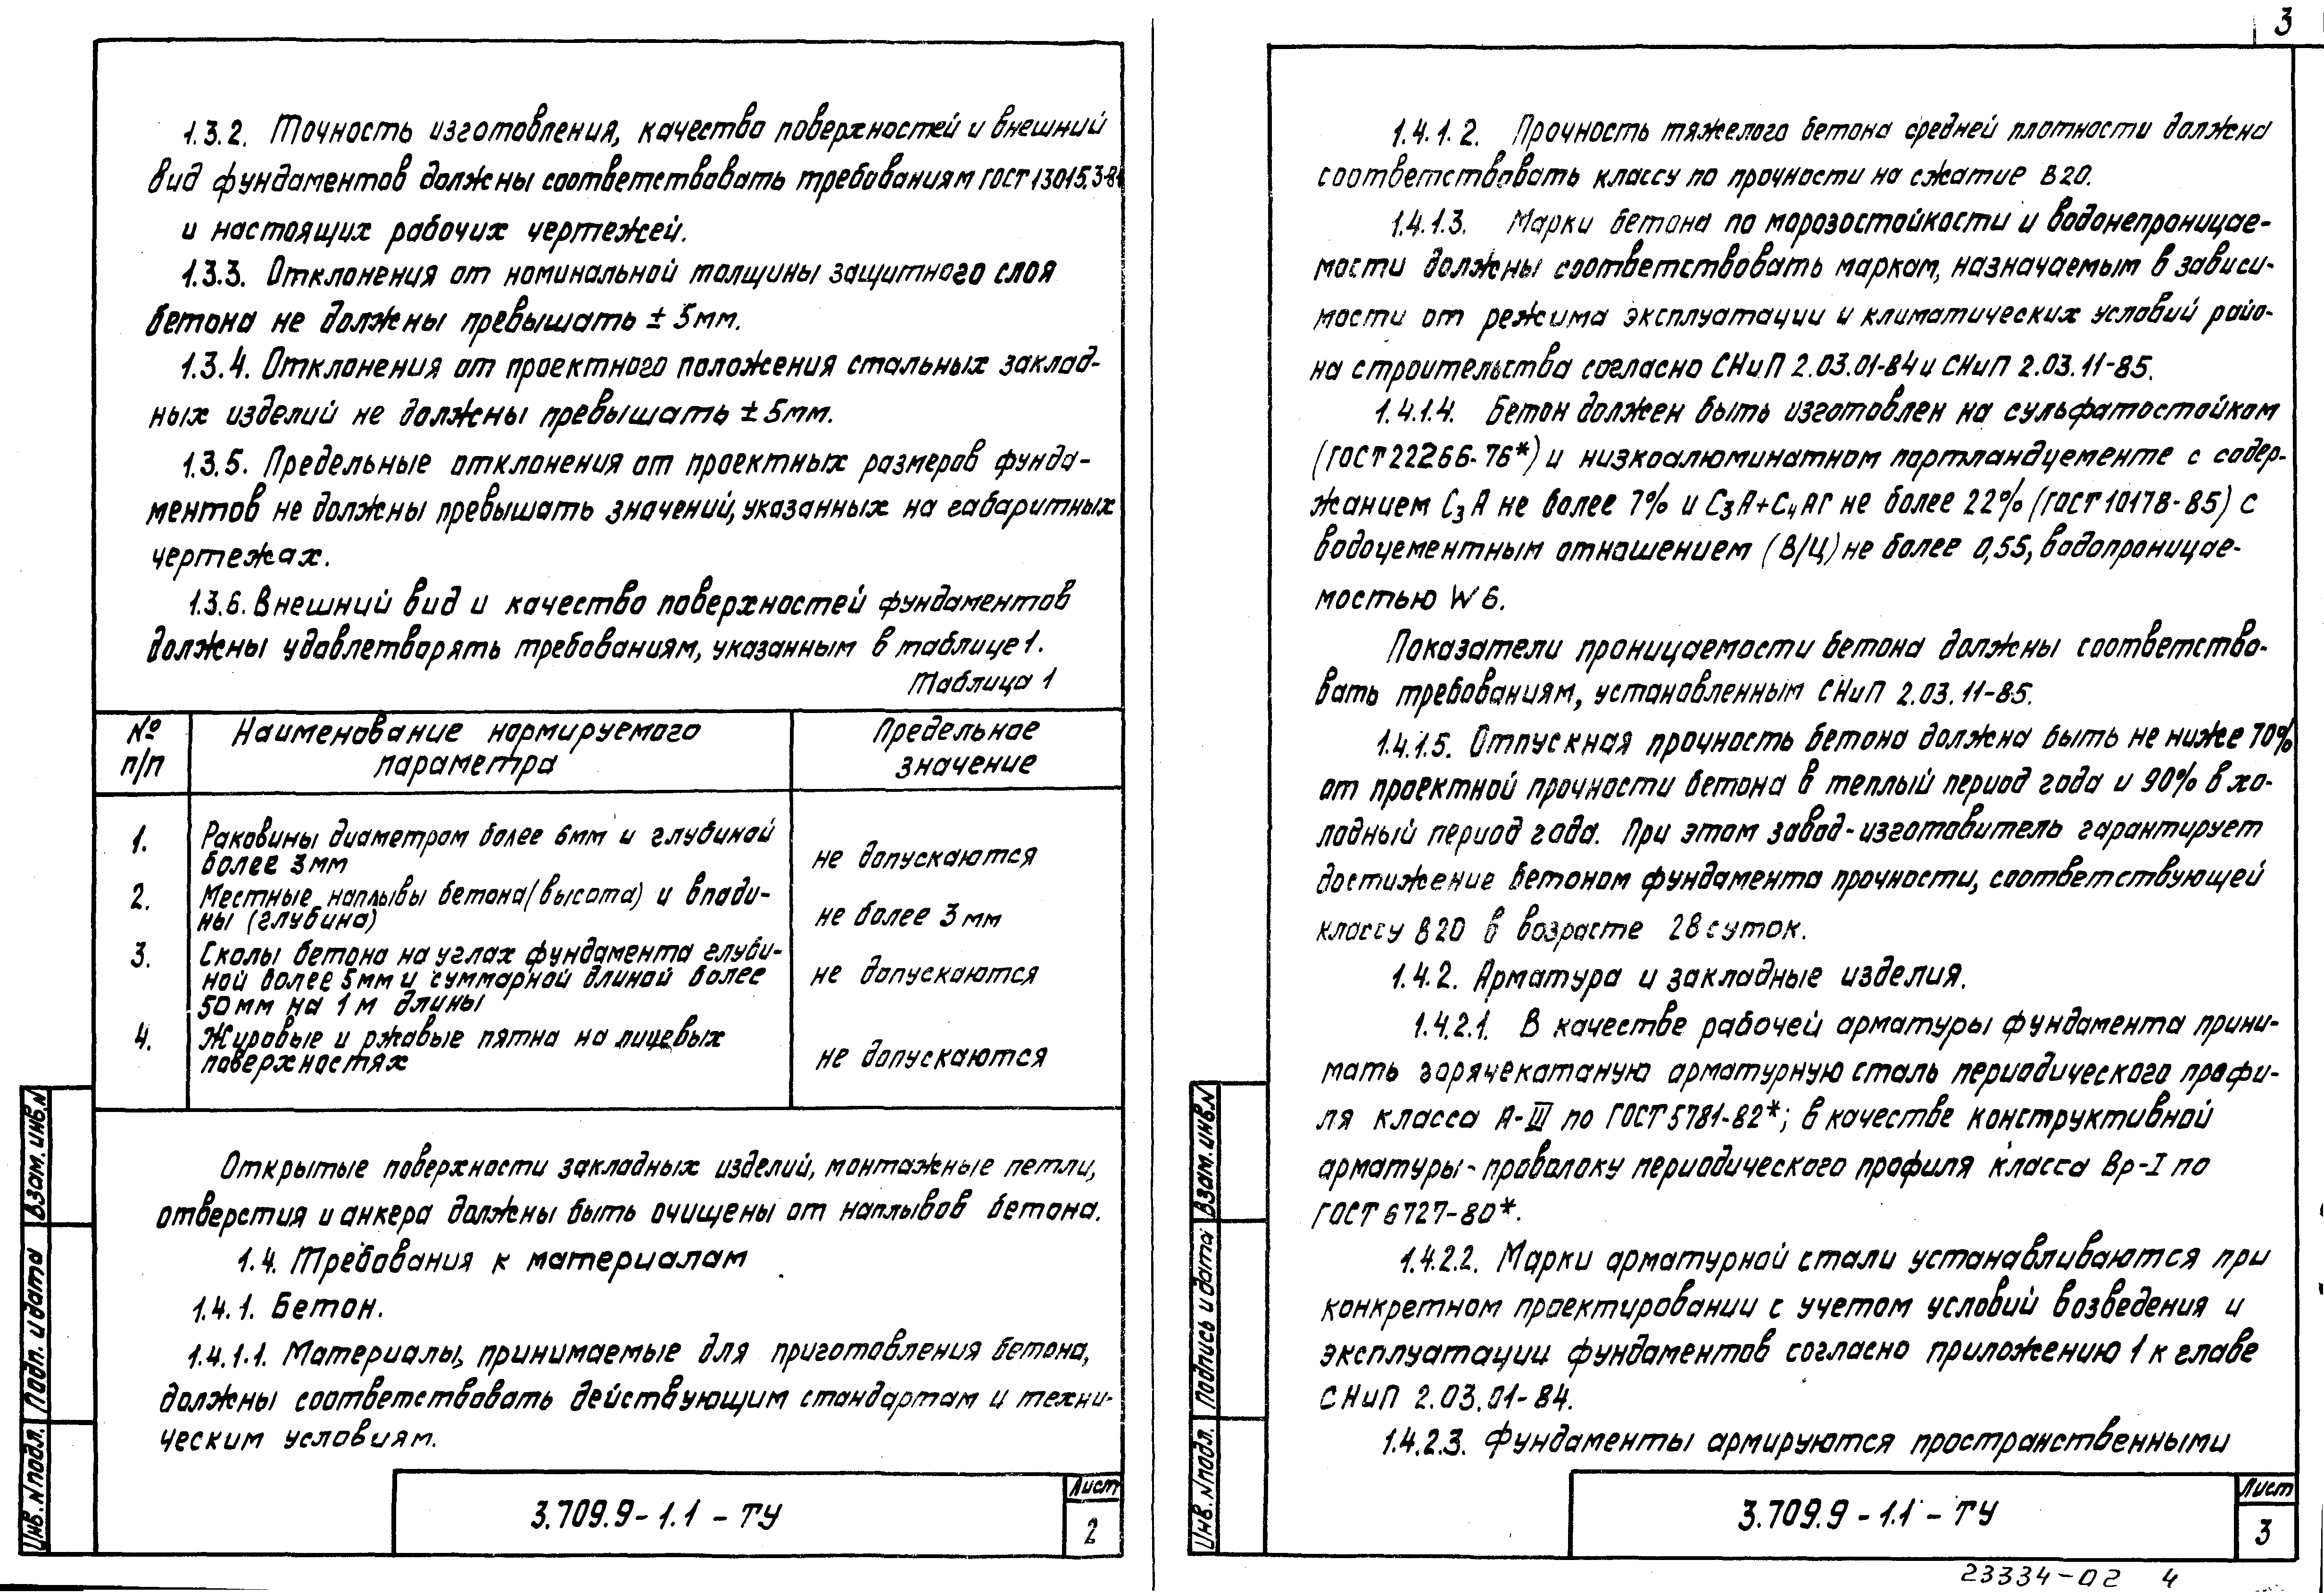 1.3.2. Точность изготовления, качество поверхностей и внешний
вид фундаментов должны соответствовать требованиям ГОСТ 13015.3-81
и настоящих рабочих чертежей.
1.3.3. Отклонения от номинальной толщины защитного слоя
бетона не должны превышать ± 5мм.
1.3.4. Отклонения от проектного положения стальных заклад-
ных изделий не должны превышать ± 5мм.
1.3.5. Предельные отклонения от проектных размеров фунда-
ментов не должны превышать значений, указанных на габаритных
чертежах.
1.3.6. Внешний вид и качество поверхностей фундаментов
должны удовлетворять требованиям, указанным в таблице 1.
Таблица 1
№ п/п
Наименование нормируемого параметра
Предельное значение
1.
Раковины диаметром более 6мм и глубиной
более 3мм
не допускаются
2.
Местные наплывы бетона (высота) и впади-
ны (глубина)
не более 3 мм
3.
Сколы бетона на углах фундамента глуби-
ной более 5мм и суммарной длиной более
50мм на 1 м длины
не допускаются
4.
Жировые и ржавые пятна на лицевых
поверхностях
не допускаются
Открытые поверхности закладных изделий, монтажные петли,
отверстия и анкера должны быть очищены от наплывов бетона.
1.4. Требования к материалам
1.4.1. Бетон.
1.4.1.1. Материалы, принимаемые для приготовления бетона,
должны соответствовать действующим стандартам и техни-
ческим условиям.
Взам. инв. N
Подп. и дата
Инв. N подл.
3.709.9-1.1-ТУ
Лист
2
3
1.4.1.2. Прочность тяжелого бетона средней плотности должна
соответствовать классу по прочности на сжатие В20.
1.4.1.3. Марки бетона по морозостойкости и водонепроницае-
мости должны соответствовать маркам, назначаемым в зависи-
мости от режима эксплуатации и климатических условий райо-
на строительства согласно СНиП 2.03.01-84 и СНиП 2.03.11-85.
1.4.1.4. Бетон должен быть изготовлен на сульфатостойком
(ГОСТ 22266-76*) и низкоалюминатном портландцементе с содер-
жанием C₃A не более 7% и C₃A+C₄АГ не более 22% (ГОСТ 10178-85) с
водоцементным отношением (В/Ц) не более 0,55, водопроницае-
мостью W6.
Показатели проницаемости бетона должны соответство-
вать требованиям, установленным СНиП 2.03.11-85.
1.4.1.5. Отпускная прочность бетона должна быть не ниже 70%
от проектной прочности бетона в теплый период года и 90% в хо-
лодный период года. При этом завод-изготовитель гарантирует
достижение бетоном фундамента прочности, соответствующей
классу В20 в возрасте 28 суток.
1.4.2. Арматура и закладные изделия.
1.4.2.1. В качестве рабочей арматуры фундамента прини-
мать горячекатаную арматурную сталь периодического профи-
ля класса А-III по ГОСТ 5781-82*; в качестве конструктивной
арматуры - проволоку периодического профиля класса Вр-I по
ГОСТ 6727-80*.
1.4.2.2. Марки арматурной стали устанавливаются при
конкретном проектировании с учетом условий возведения и
эксплуатации фундаментов согласно приложению 1 к главе
СНиП 2.03.01-84.
1.4.2.3. Фундаменты армируются пространственными
Взам. инв. N
Подпись и дата
Инв. N подл.
3.709.9-1.1-ТУ
Лист
3
23334-02 4